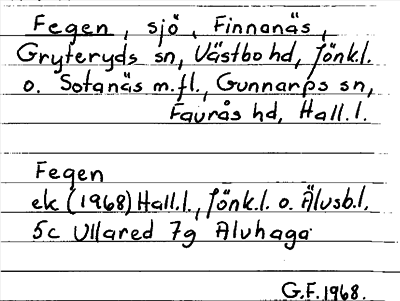 Fegen, sjö, Finnanäs,
Gryteryds sn, Västbo hd, Jönk.l.
o. Sotanäs m.fl., Gunnarps sn,
Faurås hd, Hall.l.
Fegen
ek (1968) Hall.l., Jönk.l. o. Älvsb.l.
5c Ullared 7g Alvhaga
G.F. 1968.